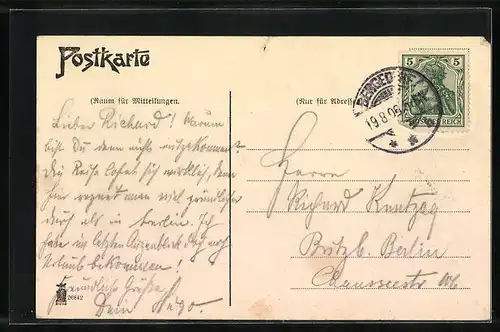 Postkarte
(Raum für Mitteilungen.
(Nur für Adresse
5 5
DEUTSCHES REICH
19.8.06
Lieber Richard! Warum
bist Du denn nicht mitgekommen?
Die Reise lohnt sich wirklich, denn
hier regnet man viel gründlicher
durch als in Berlin. Ich
habe im letzten Augenblick doch noch
Urlaub bekommen!
Freundliche Grüße!
Dein Hugo.
Herrn
Richard
Berlin
26842